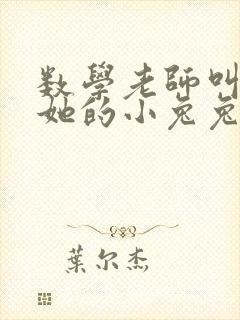 数學老師叫
她的小兔兔
葉尔杰